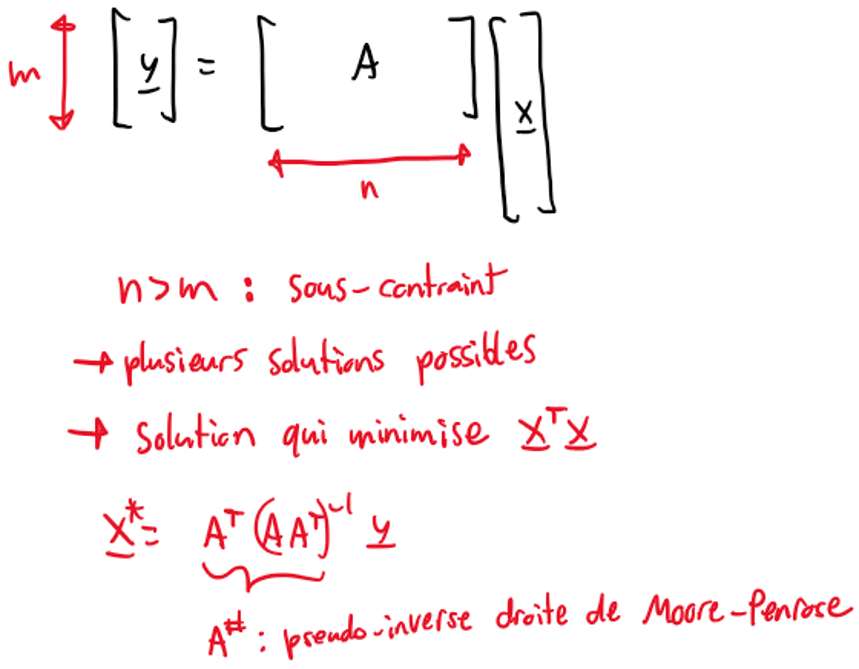 m [y] = [A] [x]
n
n>m : sous-contraint
→ plusieurs solutions possibles
→ solution qui minimise x^T x
x* = A^T (A A^T)^-1 y
A^# : pseudo-inverse droite de Moore-Penrose